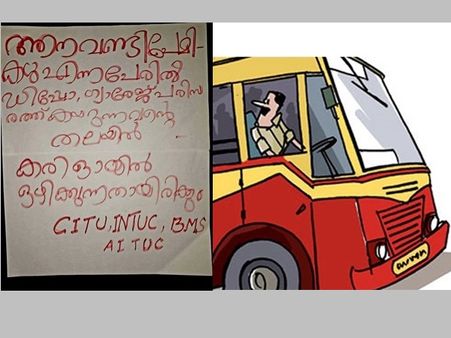 ആനവണ്ടിപ്രേമി-
കൾ എന്ന പേരിൽ
ഡിപ്പോ, ഗ്യാരേജ് പരിസ
രത്ത് കയറുന്നവന്റെ
തലയിൽ
കരി ഓയിൽ
ഒഴിക്കുന്നതായിരിക്കും
CITU, INTUC, B.M.S
AITUC